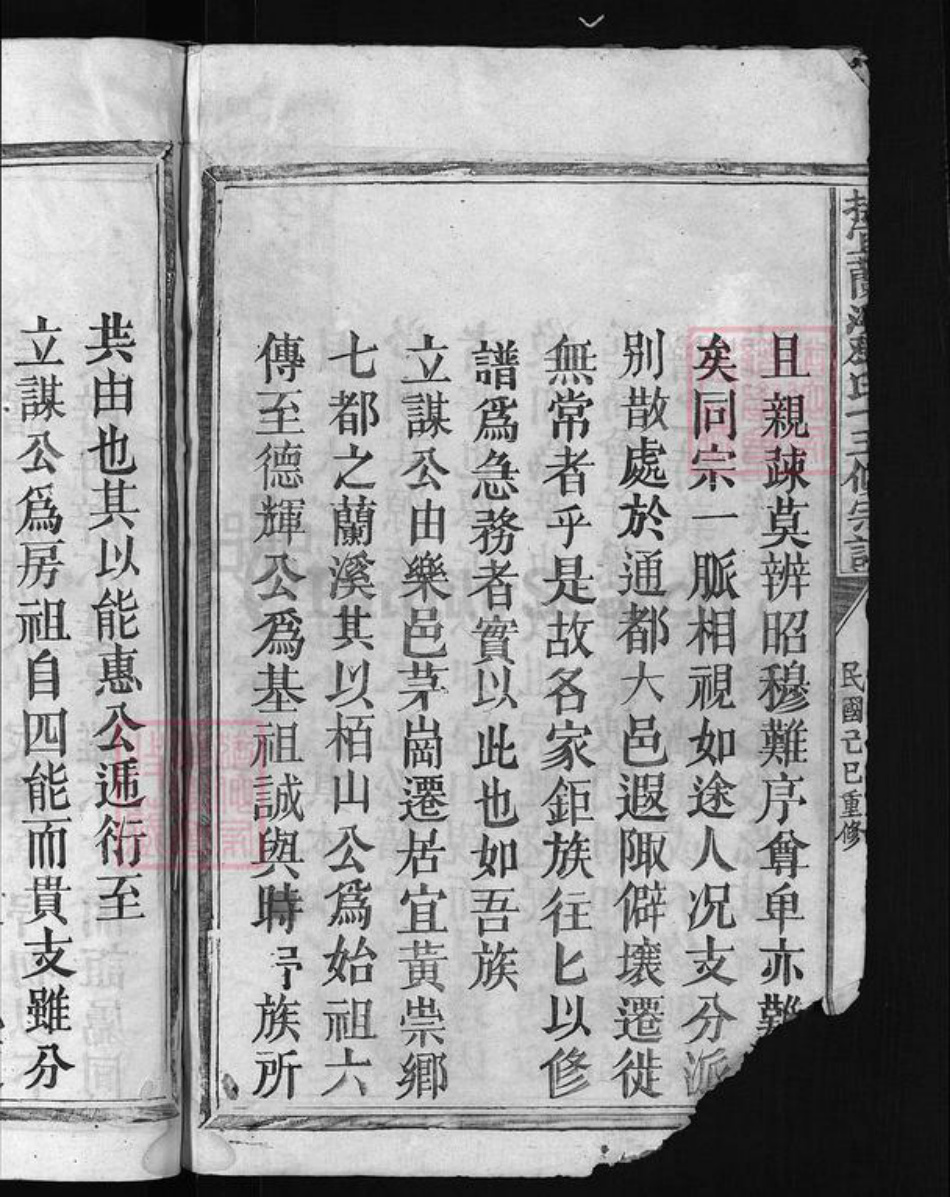 蘭溪氏十三修宗譜
民國己巳重修
且親疎莫辨昭穆難序尊卑亦難
矣同宗一脈相視如途人况支分派
别散處於通都大邑遐陬僻壤遷徙
無常者乎是故名家鉅族往匕以修
譜爲急務者實以此也如吾族
立謀公由樂邑茅崗遷居宜黃崇鄉
七都之蘭溪其以栢山公爲始祖六
傳至德輝公爲基祖誠與時予族所
共由也其以能惠公遞衍至
立謀公爲房祖自四能而貫支雖分